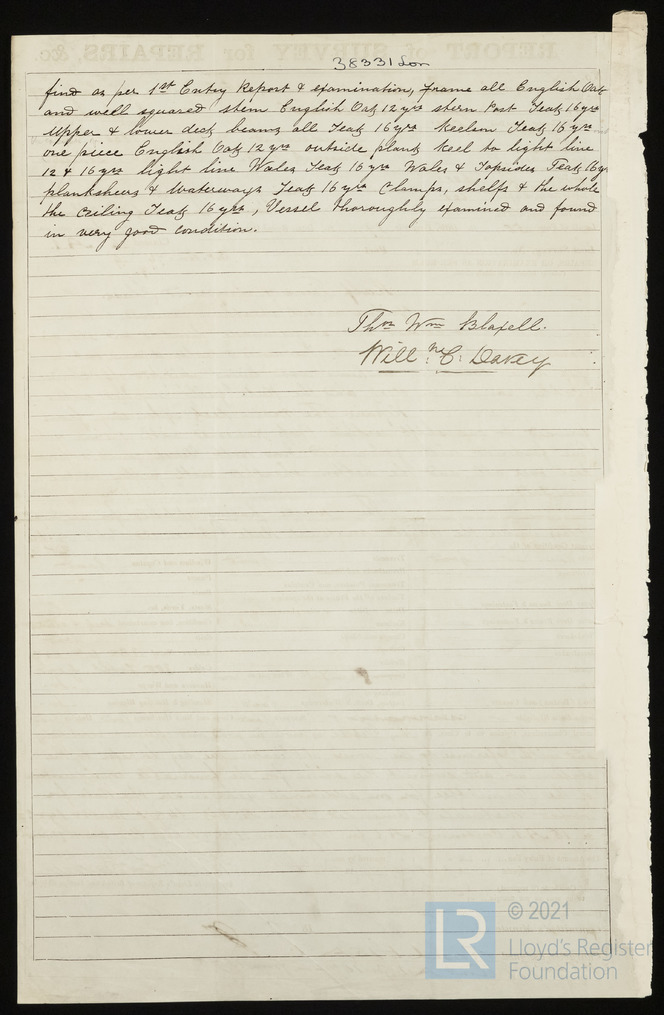 38331 Lon
find as per 1st Entry Report & examination, Frame all English Oak
and well squared stem English Oak 12 yrs stern Post Teak 16 yrs
Upper & lower deck beams all Teak 16 yrs keelson Teak 16 yrs
one piece English Oak 12 yrs outside plank keel to light line
12 & 16 yrs light line Wales Teak 16 yrs Wales & Topsides Teak 16 yrs
planksheers & Waterways Teak 16 yrs Clamps, shelfs & the whole
the Ceiling Teak 16 yrs, Vessel thoroughly examined and found
in very good condition.
Thos Wm Blaxell.
Willm C. Davey
LR
© 2021
Lloyd's Register
Foundation